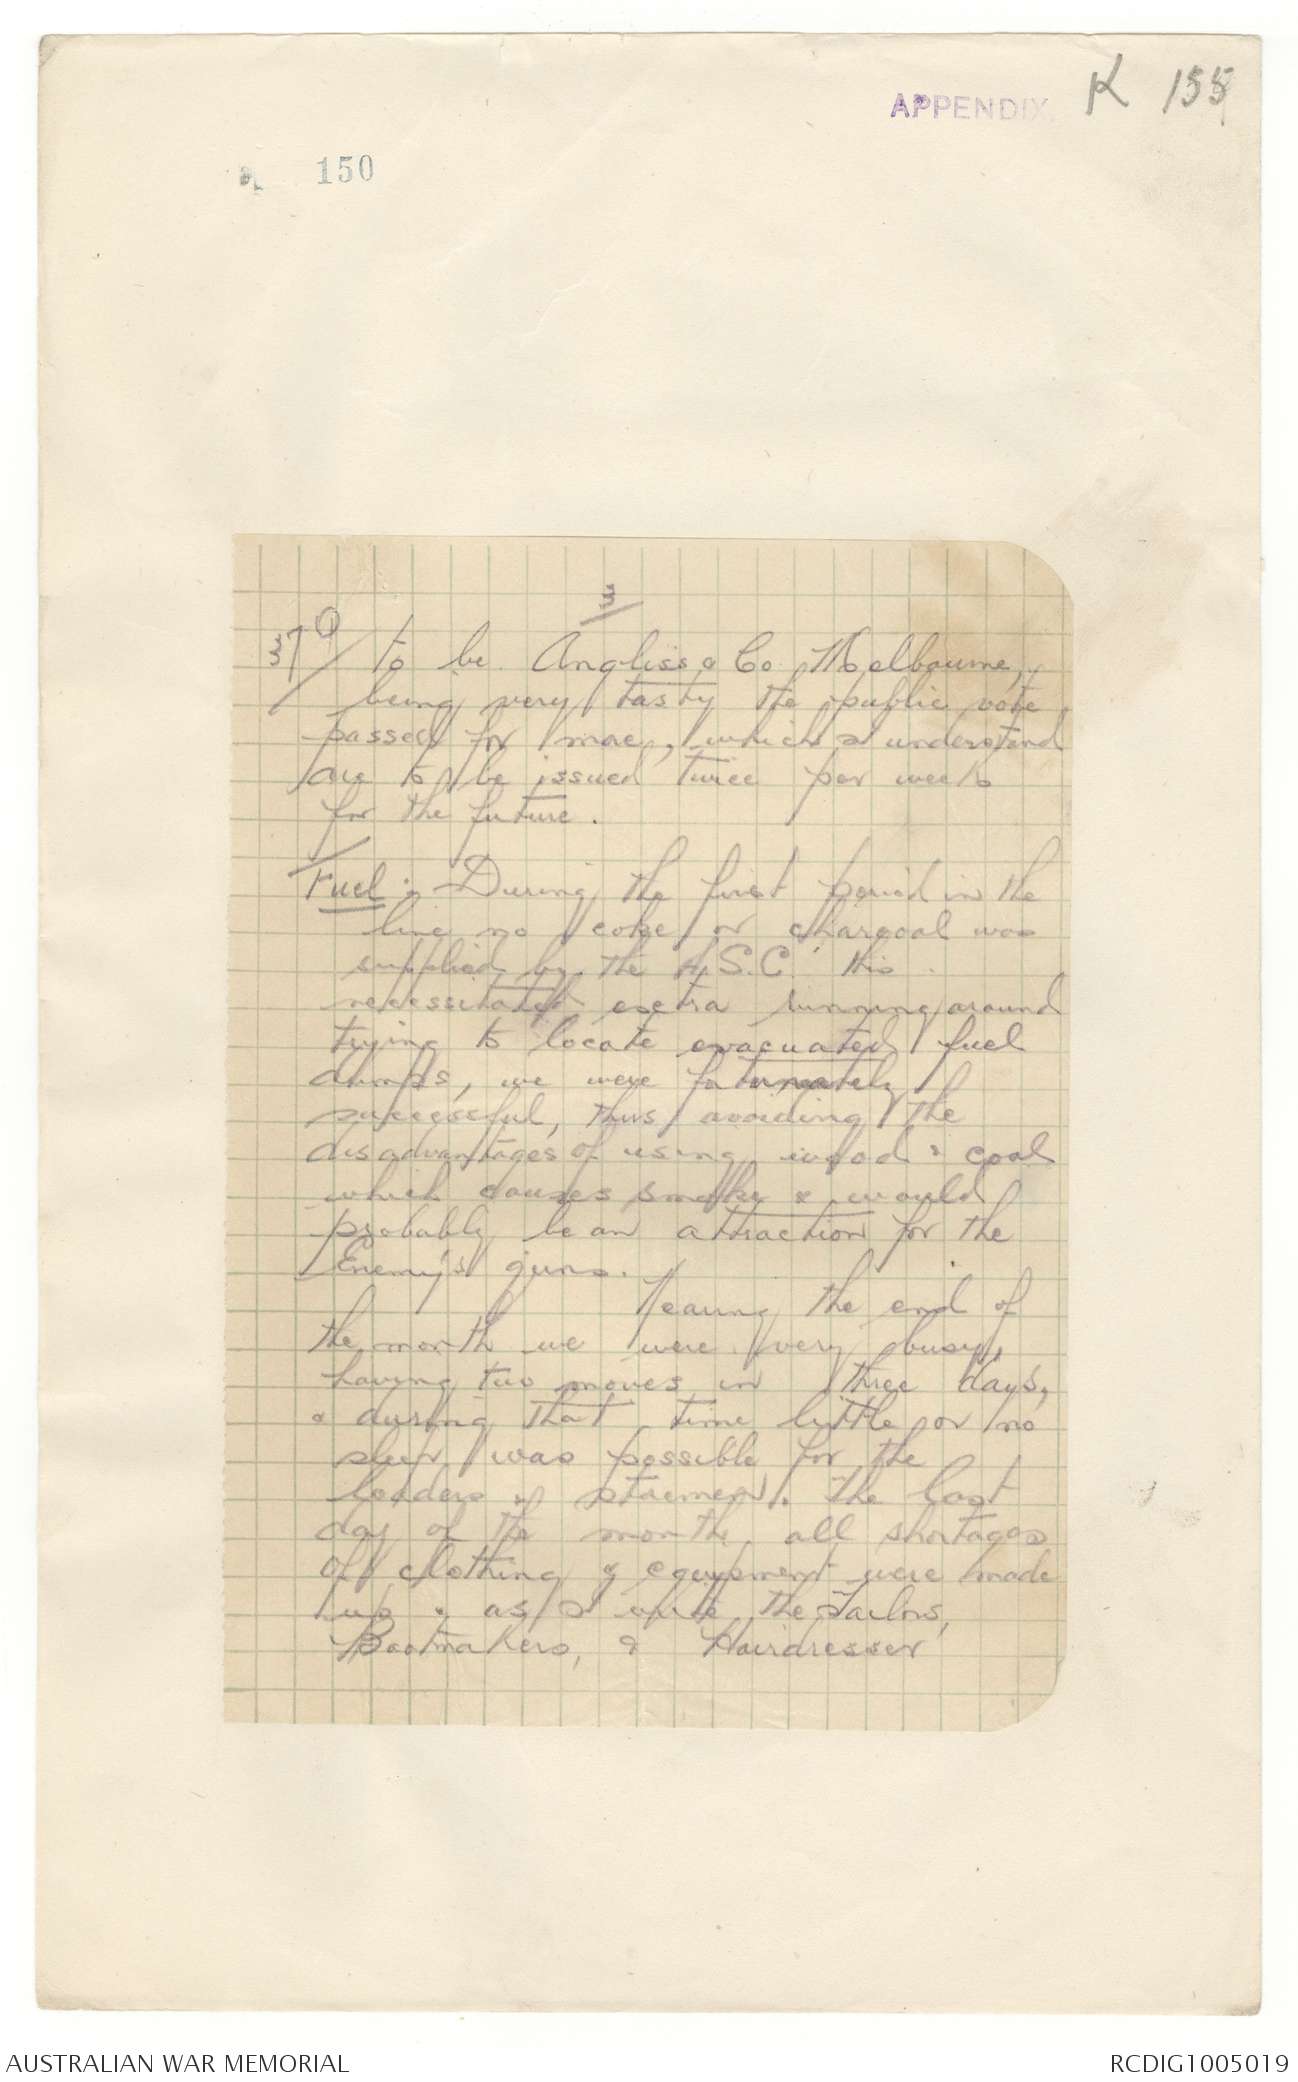 APPENDIX. K 155
150
to be Angliss & Co. Melbourne,
being very tasty the public vote
passed for more, which I understand
are to be issued twice per week
for the future.
Fuel:- During the first period in the
line no coke or charcoal was
supplied by the A.S.C. this
necessitated extra running around
trying to locate evacuated fuel
dumps, we were fortunately
successful, thus avoiding the
disadvantages of using wood & coal
which causes smoke & would
probably be an attraction for the
Enemy's guns.
Nearing the end of
the month we were very busy,
having two moves in three days,
& during that time little or no
sleep was possible for the
loaders & storemen. The last
day of the month, all shortages
of clothing & equipment were made
up & as I write the Tailors,
Bootmakers, & Hairdresser
AUSTRALIAN WAR MEMORIAL
RCDIG1005019